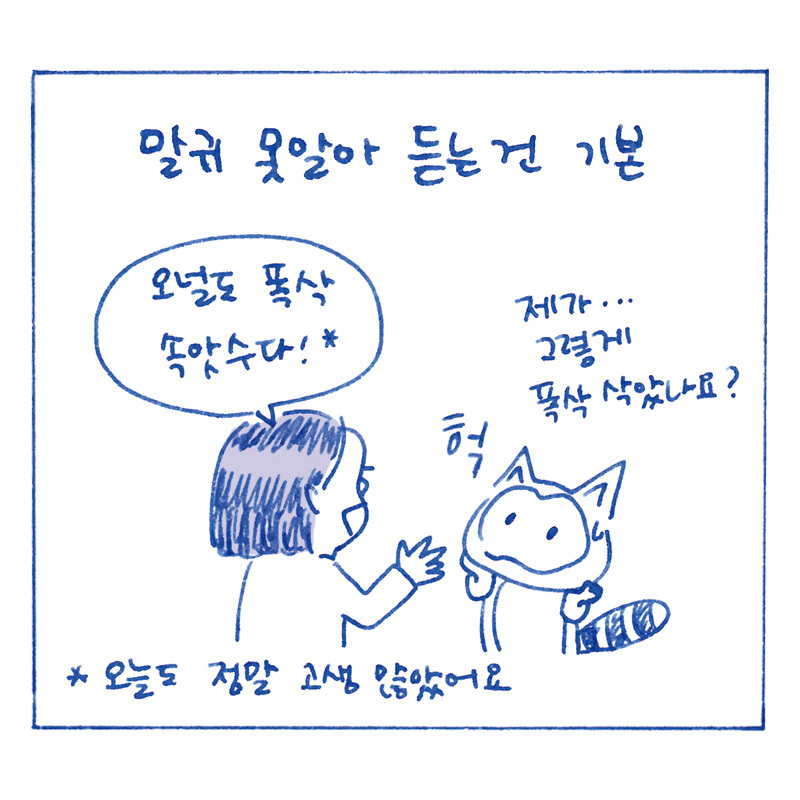 말귀 못알아 듣는건 기본
오널도 폭삭
속앗수다! *
제가...
그렇게
폭삭 삭았나요?
헉
* 오늘도 정말 고생 많았어요